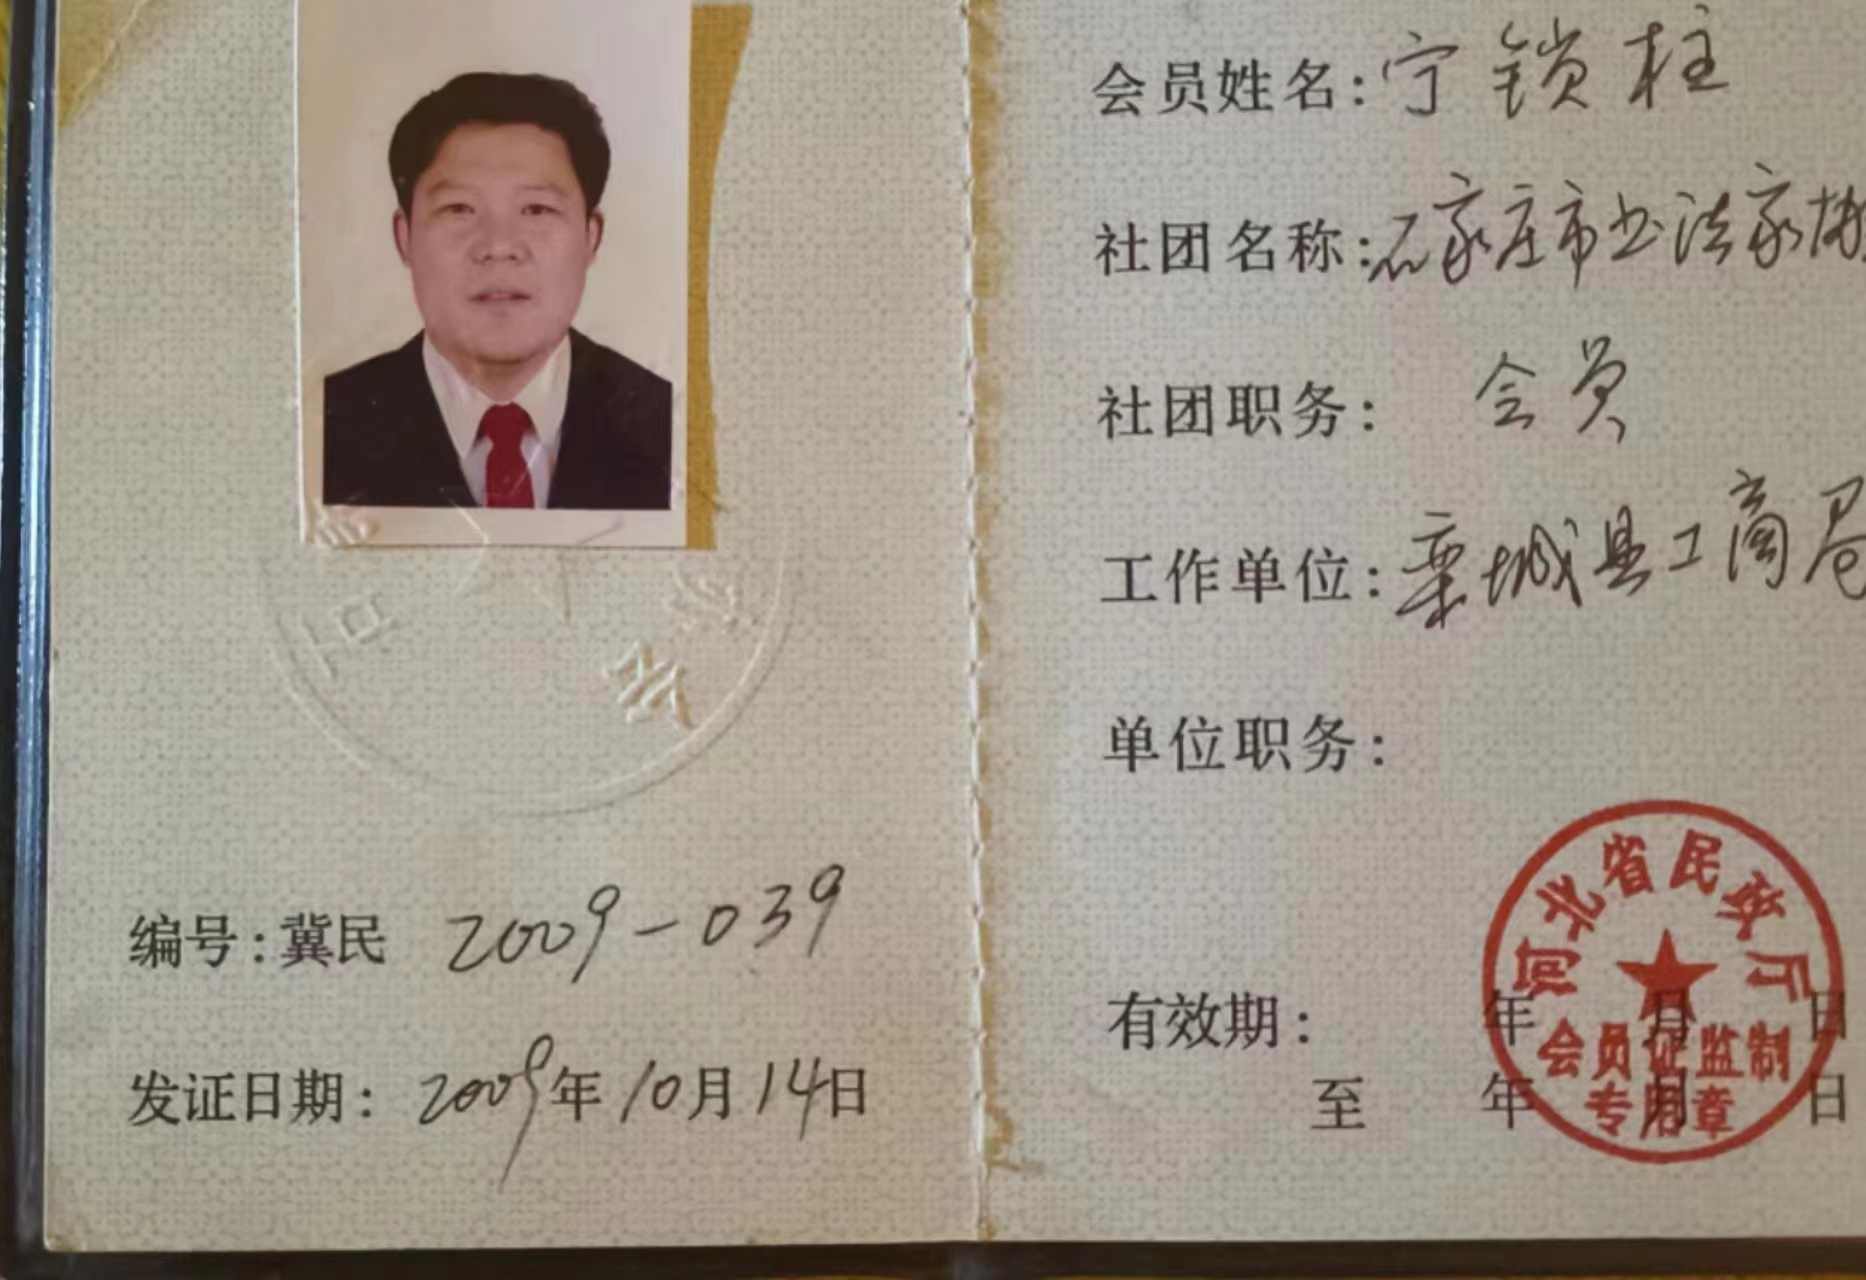 编号:冀民 2009-039
发证日期: 2009年10月14日
会员姓名:宁锁柱
社团名称:石家庄市书法家协
社团职务: 会员
工作单位:栾城县工商局
单位职务:
有效期: 年 月 日
至 年 月 日
河北省民政厅
会员证监制
专用章